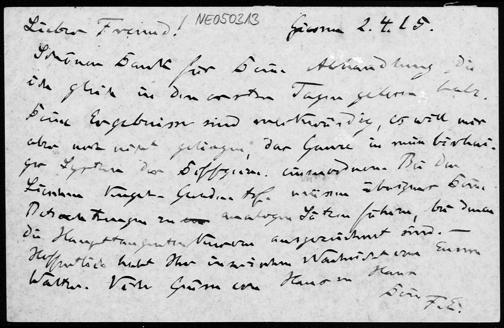 / NE050313
Lieber Freund! Giessen 2.4.15.
Schönen Dank für Deine Abhandlung, die
ich gleich in den ersten Tagen gelesen habe.
Deine Ergebnisse sind merkwürdig, es will mir
aber noch nicht gelingen, das Ganze in mein bisheri-
ges System der einzuordnen. Bei der
Lieschen Kugel-Geraden-Trf. müssen übrigens Deine
Betrachtungen zu analogen Sätzen führen, bei denen
die Haupttangentenkurven ausgezeichnet sind.
Hoffentlich habt Ihr inzwischen Nachricht von Eurem
Walter. Viele Grüsse von Haus zu Haus
Dein F.E.